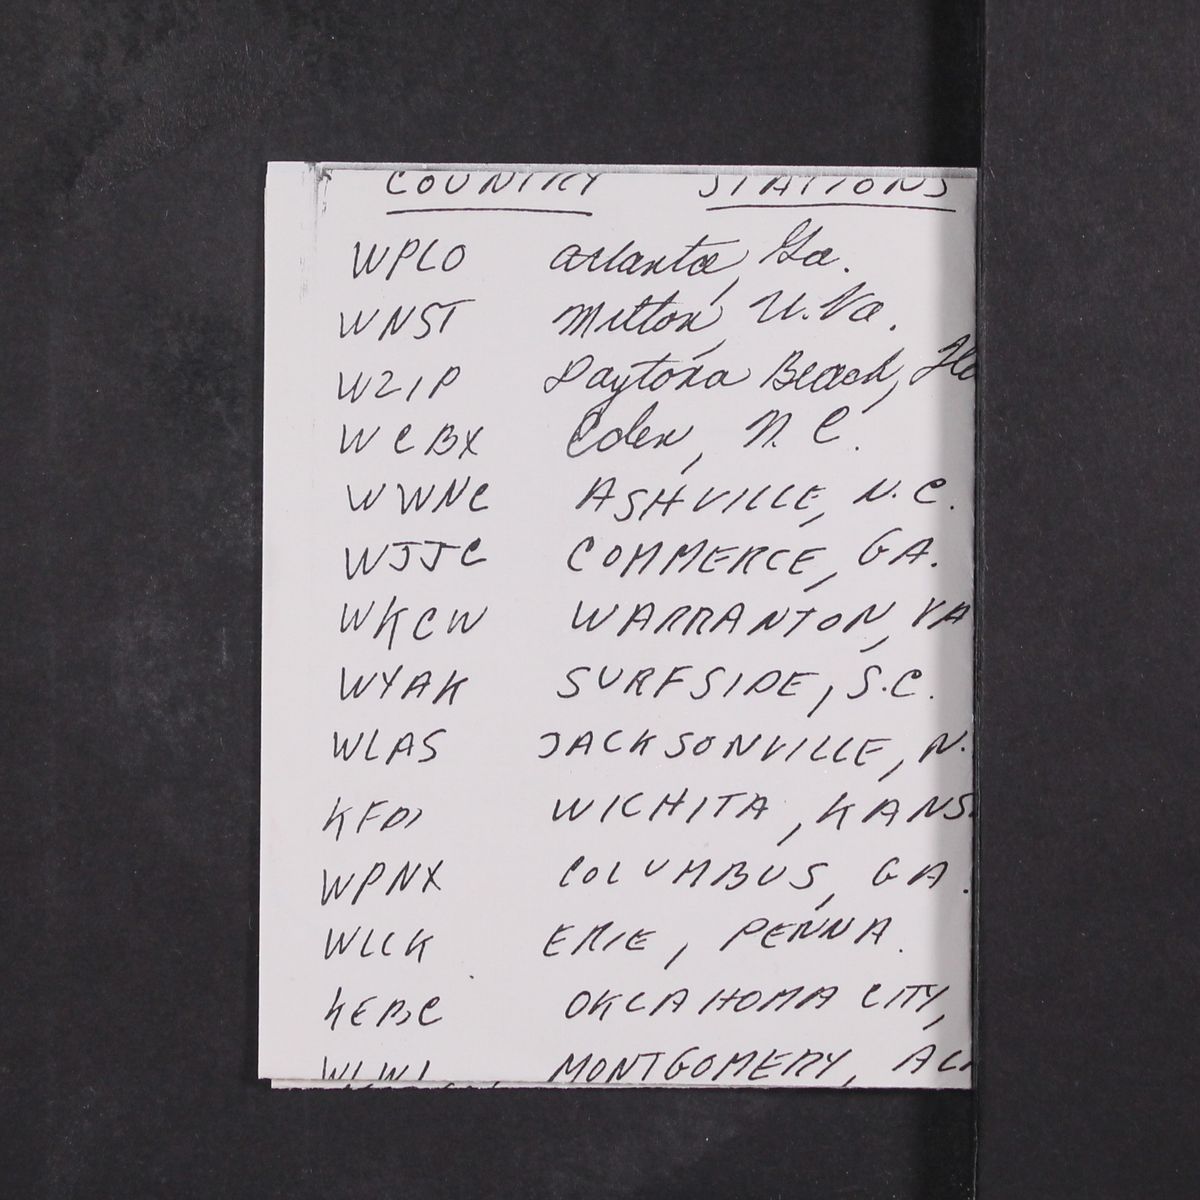 COUNTRY STATIONS
WPLO Atlanta, Ga.
WNST Milton, W. Va.
WZIP Daytona Beach, Flo
WCBX Eden, N. C.
WWNC ASHVILLE, N.C.
WJJC COMMERCE, GA.
WKCW WARRANTON, VA
WYAK SURFSIDE, S.C.
WLAS JACKSONVILLE, N.
KFDI WICHITA, KANS.
WPNX COLUMBUS, GA.
WLCK ERIE, PENNA.
KEBC OKLAHOMA CITY,
WLWI MONTGOMERY, AL